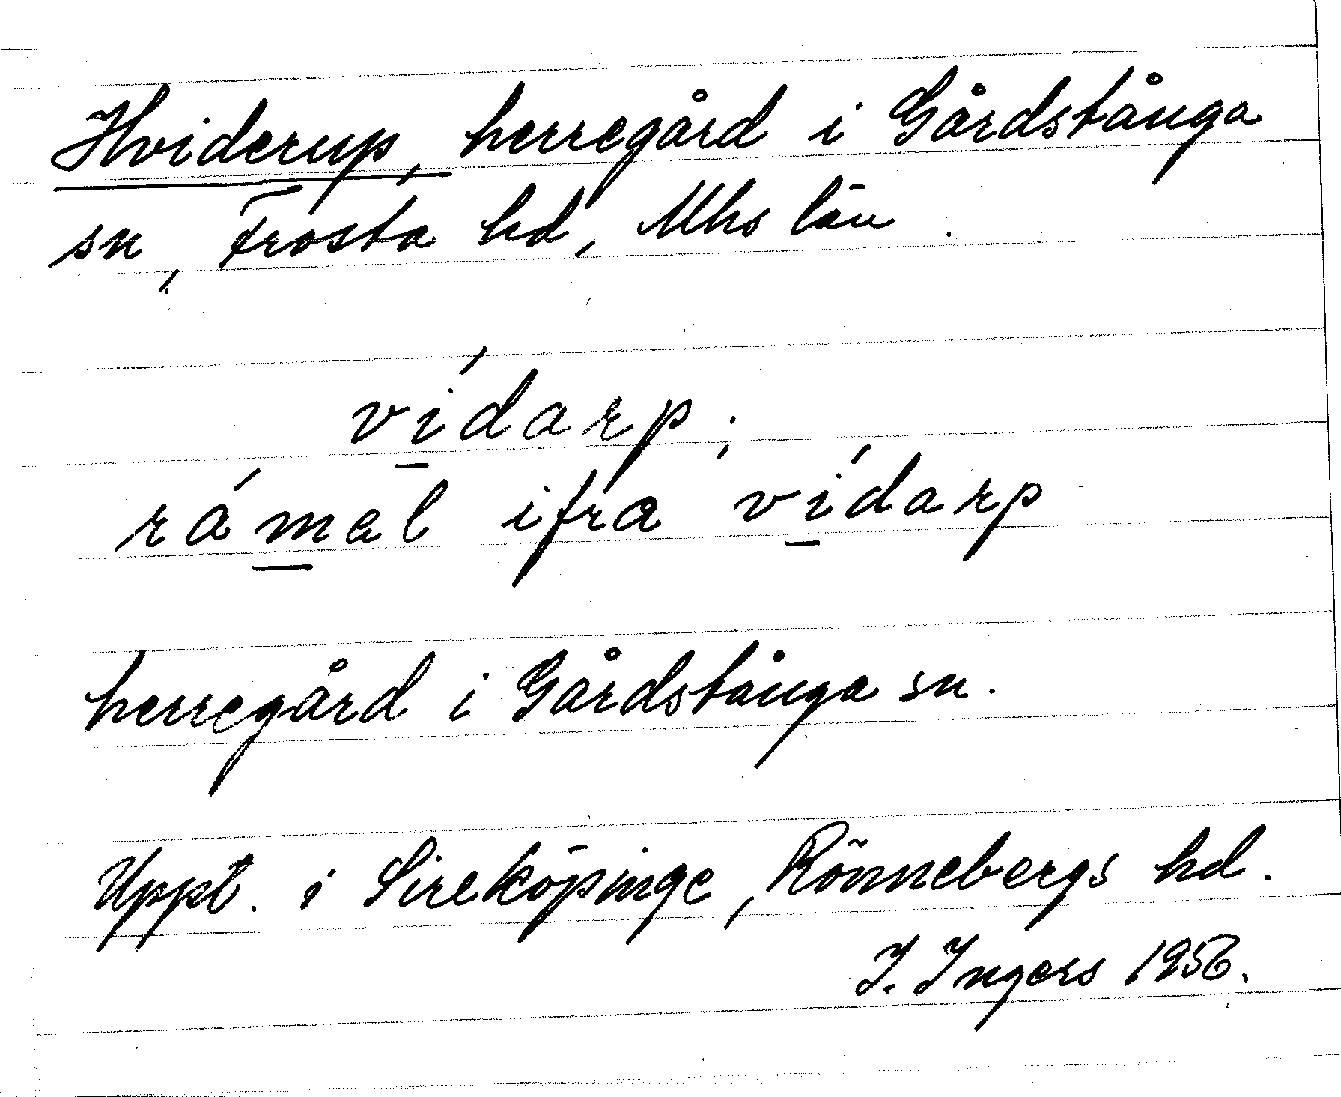 Hviderup, herregård i Gårdstånga
sn, Frosta hd, Mhs län.
vídarp;
rámel ifra vídarp
herregård i Gårdstånga sn.
Uppt. i Sireköpinge, Rönnebergs hd.
I. Ingers 1956.